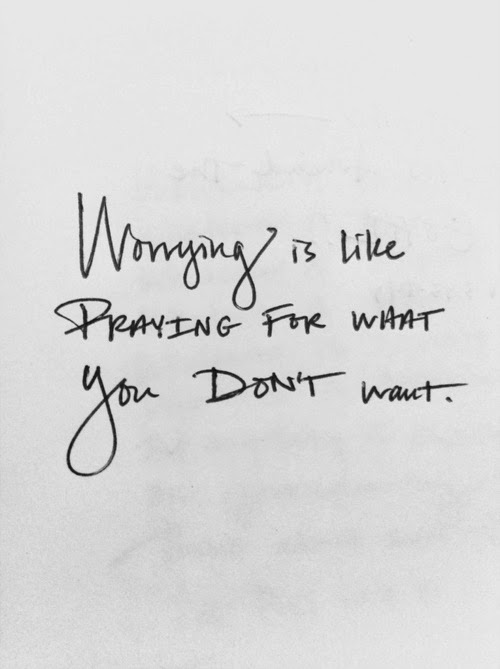 Worrying is like
PRAYING FOR WHAT
you DON'T want.